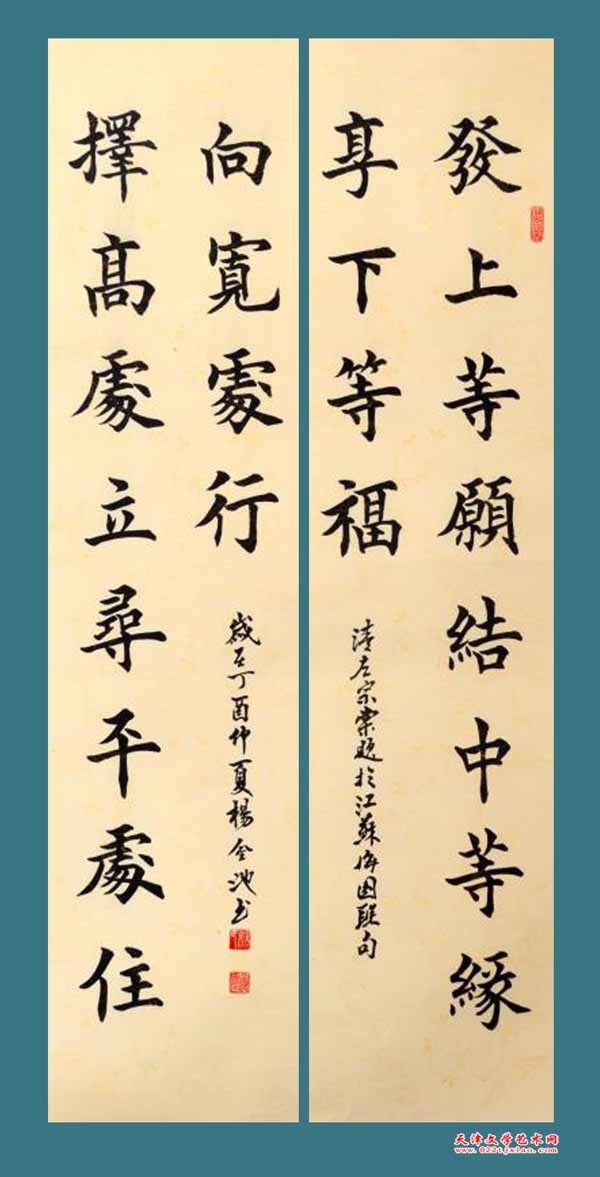 發上等願結中等緣
享下等福
清左宗棠題於江蘇梅園聯句
擇髙處立尋平處住
向寬處行
歲在丁酉仲夏楊金池書
天津文学艺术网
www.0221jxian.com